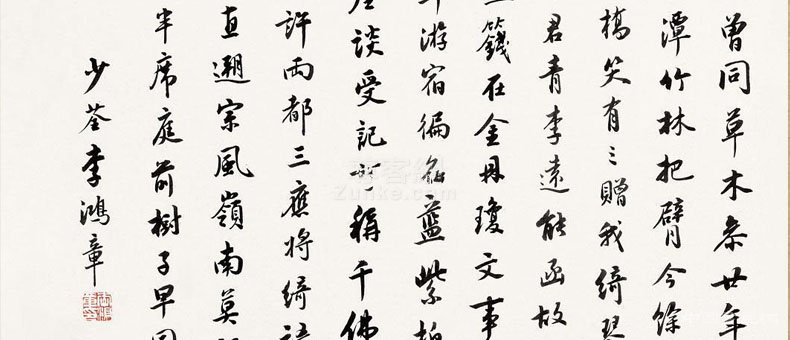 曾同草木叅廿年
潭竹林把臂今餘
橋笑有〻贈我綺
君青李遠能函故
籤在金丹瓊文事
游宿徧名藍紫柏
談受記可稱千佛
許兩都三應將綺語
直遡宗風嶺南莫
半席庭前樹子早
少荃李鴻章
Zunke.com